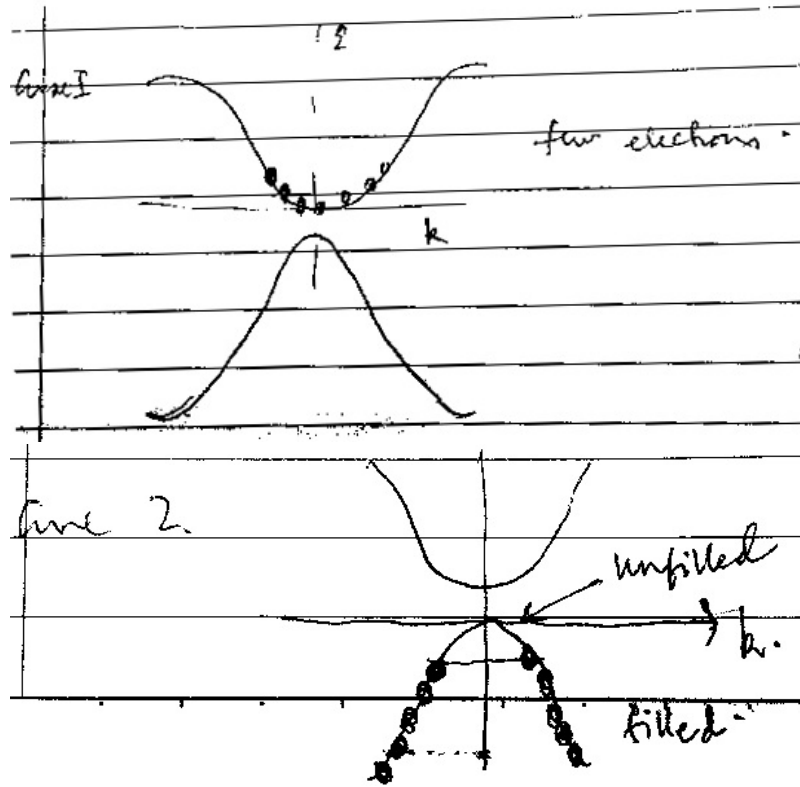 Case I
few electrons.
k
Case 2.
unfilled
k.
filled.